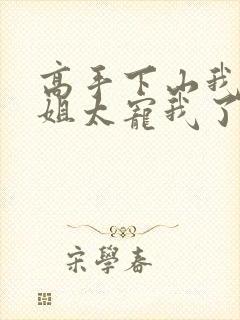 高手下山我
姐太寵我了
宋學春